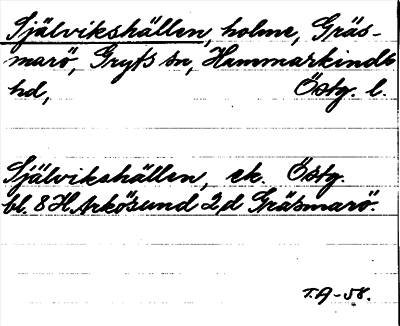 Självikshällen, holme, Gräs-
marö, Gryts sn, Hammarkinds
hd, Östg. l.
Självikshällen, ek. Östg.
bl. 8 H. Arkösund 2 d Gräsmarö.
T.A-58.